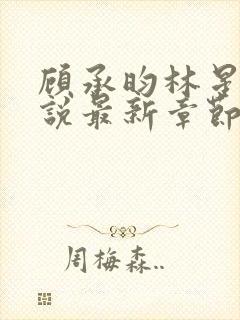 顾承昀林星
說最新章節
周梅森..